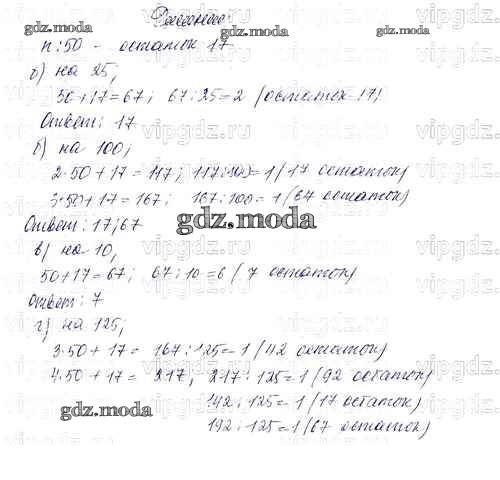 Решение
gdz.moda
n:50 - остаток 17
gdz.moda
б) на 25;
50+17=67; 67:25=2 (остаток 17)
Ответ: 17
б) на 100;
2·50+17=117; 117:100=1(17 остаток)
3·50+17=167; 167:100=1(67 остаток)
Ответ: 17; 67
gdz.moda
в) на 10;
50+17=67; 67:10=6(7 остаток)
Ответ: 7
г) на 125;
3·50+17=167:125=1(42 остаток)
4·50+17=217; 217:125=1(92 остаток)
gdz.moda
142:125=1(17 остаток)
192:125=1(67 остаток)
vipgdz